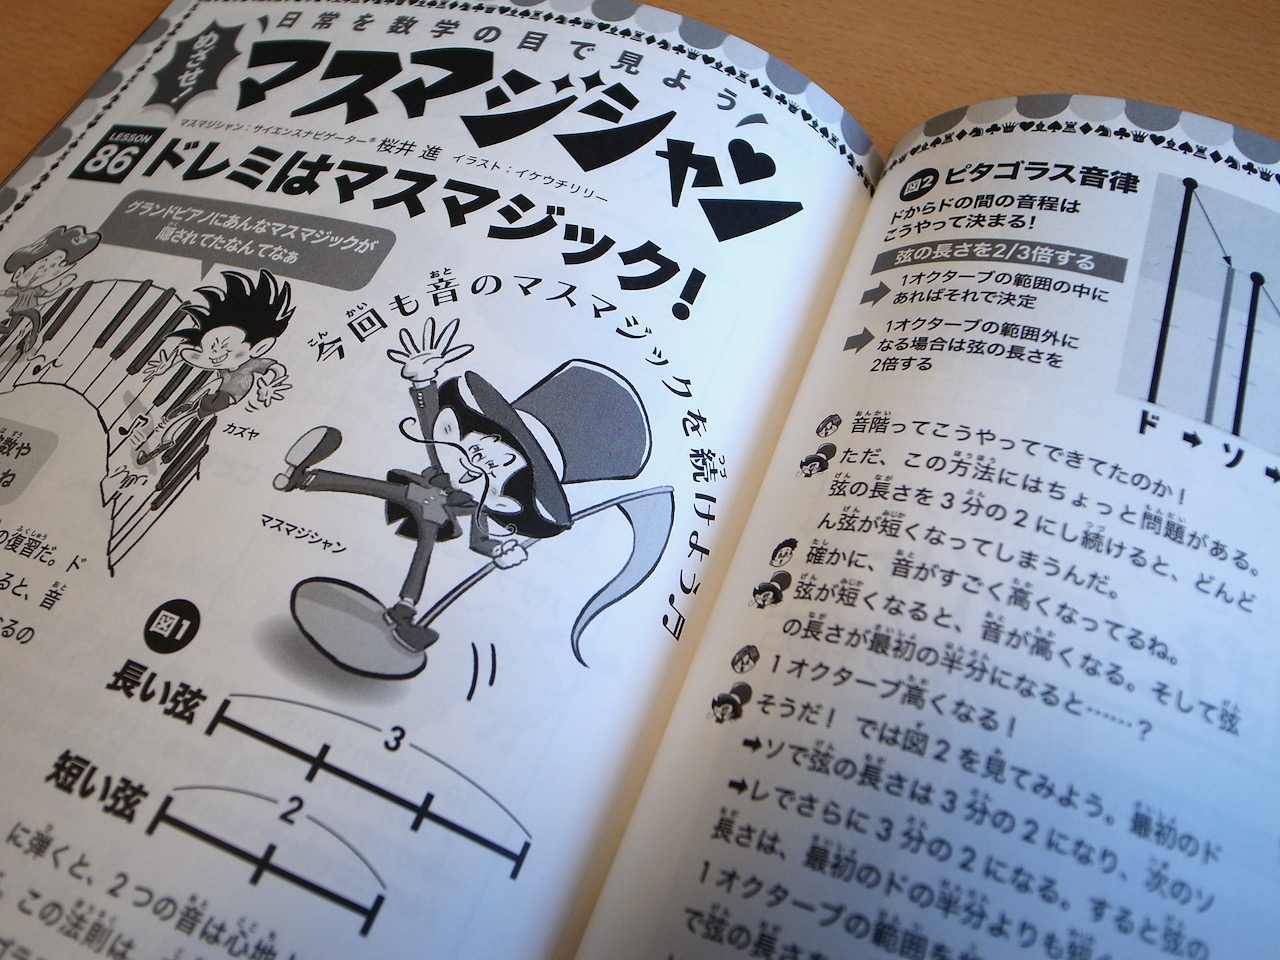 日常を数学の目で見よう
めざせ!
マスマジシャン
マスマジシャン:サイエンスナビゲーター® 桜井 進 イラスト:イケウチリリー
LESSON
86
ドレミはマスマジック!
グランドピアノにあんなマスマジックが
隠されてたなんてなぁ
カズヤ
今回も音のマスマジックを続けよう♬
マスマジシャン
数や
ね
の復習だ。ド
ると、音
るの
図1
長い弦
3
短い弦
2
に弾くと、2つの音は心地
、この法則は、
図2 ピタゴラス音律
ドからドの間の音程は
こうやって決まる!
弦の長さを2/3倍する
➡ 1オクターブの範囲の中に
あればそれで決定
➡ 1オクターブの範囲外に
なる場合は弦の長さを
2倍する
ド ➡ ソ ➡
音階ってこうやってできてたのか!
ただ、この方法にはちょっと問題がある。
弦の長さを3分の2にし続けると、どんど
ん弦が短くなってしまうんだ。
確かに、音がすごく高くなってるね。
弦が短くなると、音が高くなる。そして弦
の長さが最初の半分になると……?
1オクターブ高くなる!
そうだ! では図2を見てみよう。最初のド
➡ソで弦の長さは3分の2になり、次のソ
➡レでさらに3分の2になる。すると弦の
長さは、最初のドの半分よりも短く
1オクターブの範囲を
で弦の長さを